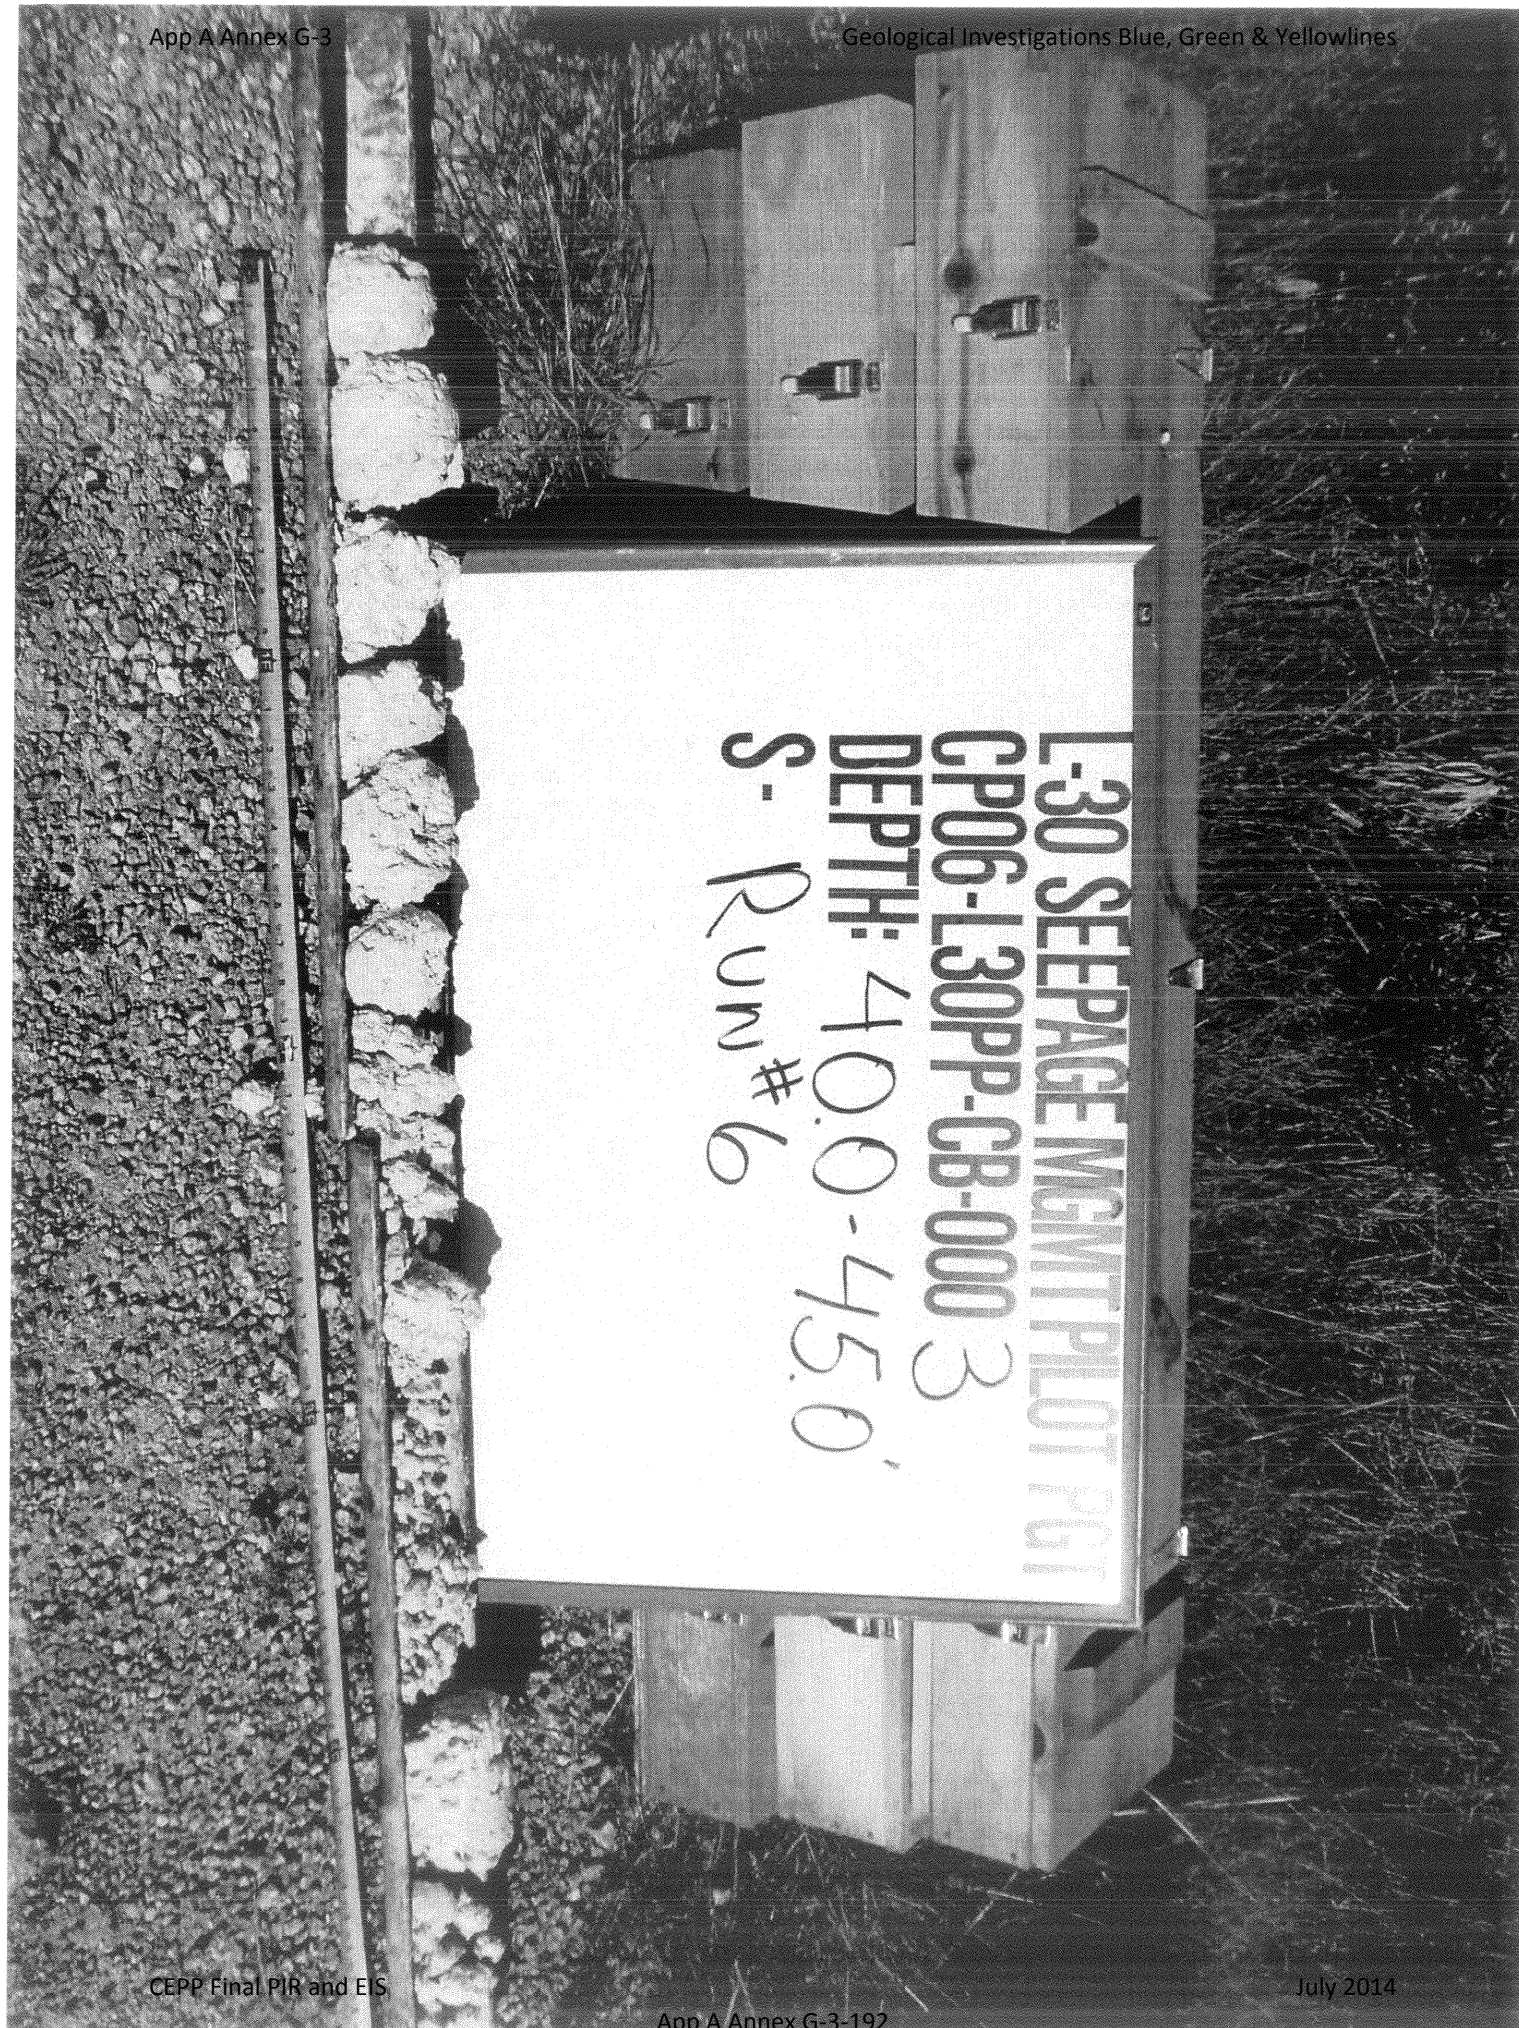 App A Annex G-3
Geological Investigations Blue, Green & Yellowlines
L-30 SEEPAGE MGMT PILOT PGT
CP06-L30PP-CB-000 3
DEPTH: 40.0 - 45.0'
S- Run #6
CEPP Final PIR and EIS
July 2014
App A Annex G-3-192